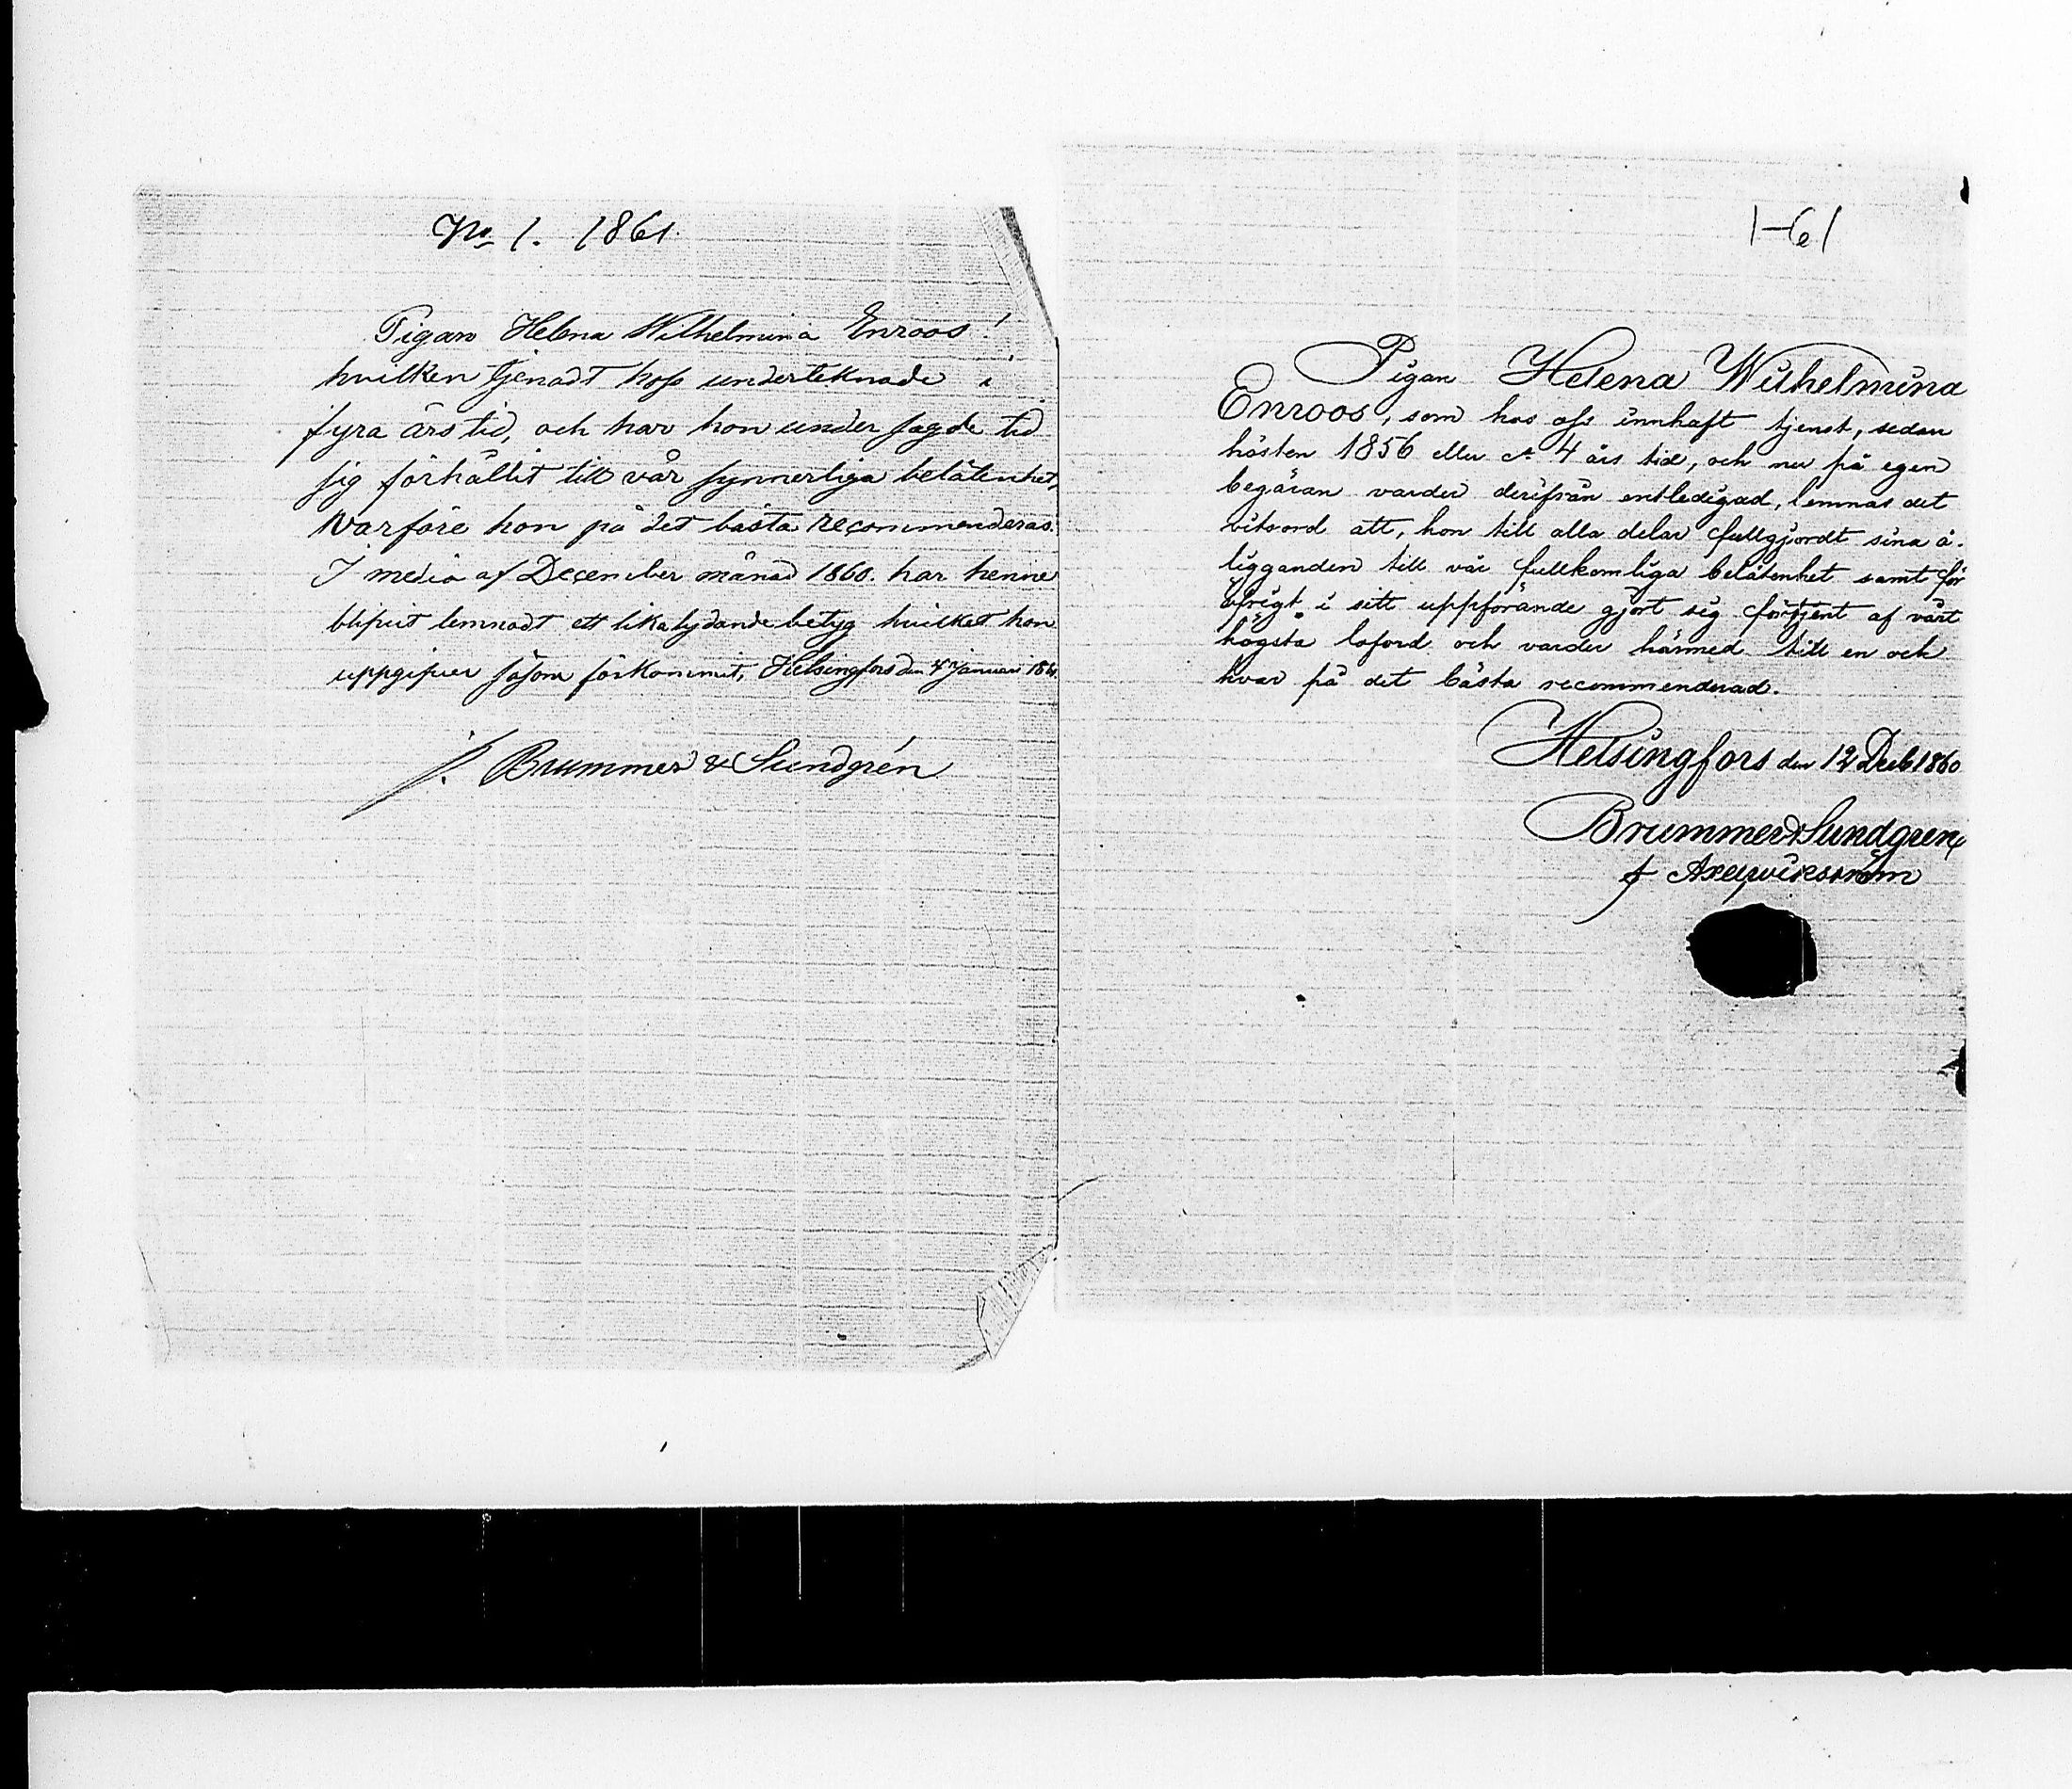 No 1. 1861.
Pigan Helena Wilhelmina Enroos!
hvilken tjenadt hoss underteknade i
fyra års tid, och har hon under sagde tid
sig förhållit till vår synnerliga belåtenhet,
varföre hon på det bästa recommenderas.
I medio af December månad 1860. har henne
blifvit lemnadt ett likalydande betyg hvilket hon
uppgifver såsom förkommit, Helsingfors den 4 Januari 1861.
Brummer & Sundgrén
1-61
Pigan Helena Wilhelmina
Enroos, som hos oss innhaft tjenst, sedan
hösten 1856 eller ca 4 års tid, och nu på egen
begäran varder derifrån entledigad, lemnas det
vitsord att, hon till alla delar fullgjordt sina å-
ligganden till vår fullkomliga belåtenhet samt för
öfrigt i sitt uppförande gjort sig förtjent af vårt
högsta loford och varder härmed till en och
hvar på det bästa recommenderad.
Helsingfors den 12 Decb 1860
Brummer & Sundgren
f Axel Wikström